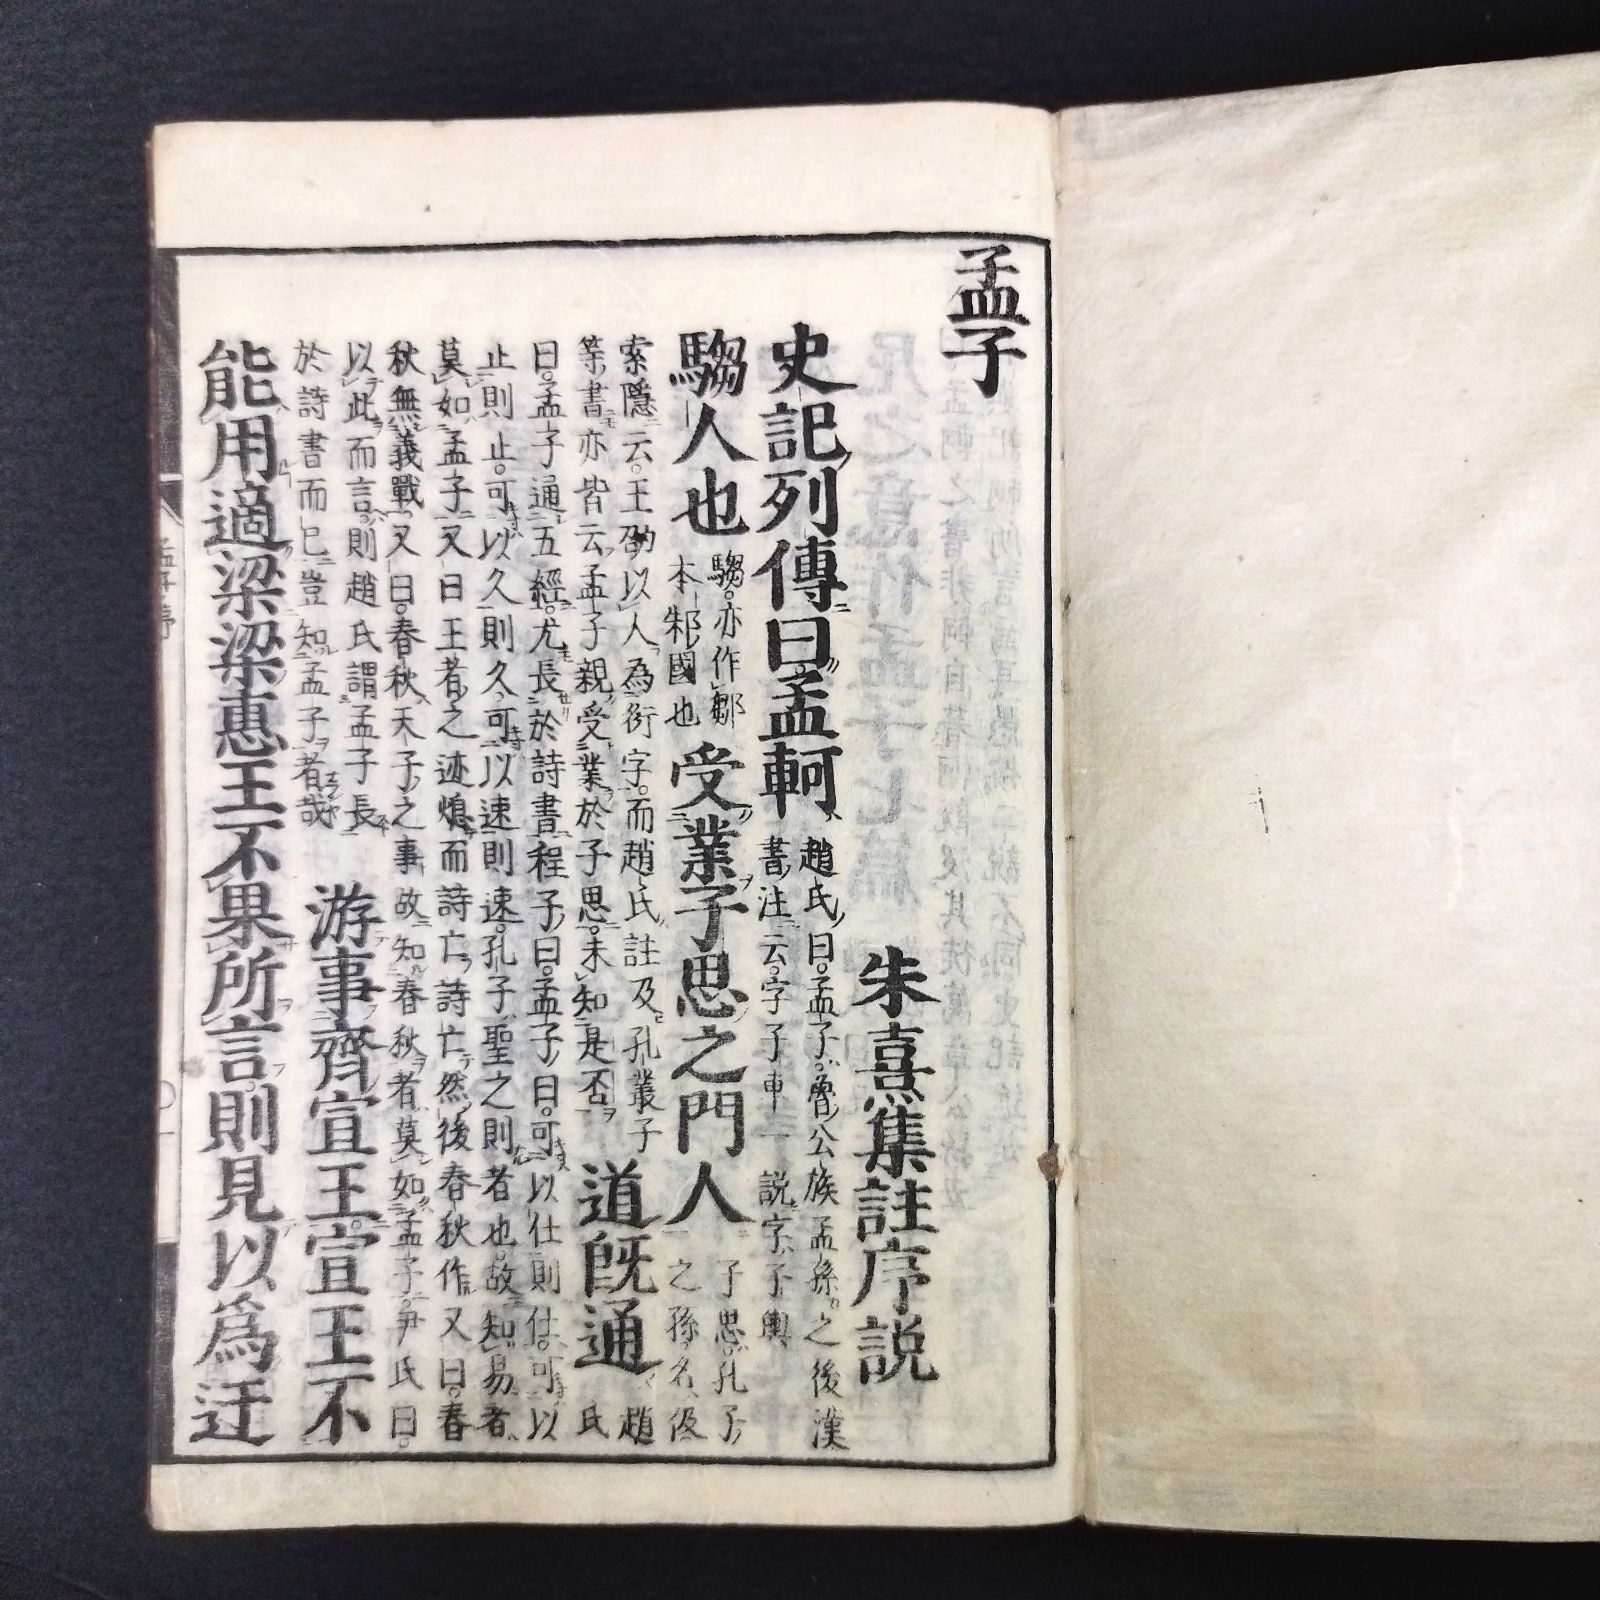 孟子
朱熹集註序説
史記列傳曰孟軻
趙氏曰孟子魯公族孟孫之後漢
書注云字子車一説字子輿
騶人也
騶亦作鄒
本邾國也
受業子思之門人
子思孔子
之孫名伋
索隱云王劭以人為衍字而趙氏註及孔叢子
等書亦皆云孟子親受業於子思未知是否
道既通
趙
氏
曰孟子通五經尤長於詩書程子曰孟子曰可以仕則仕可以
止則止可以久則久可以速則速孔子聖之則者也故知易者
莫如孟子又曰王者之迹熄而詩亡詩亡然後春秋作又曰春
秋無義戰又曰春秋天子之事故知春秋者莫如孟子尹氏曰
以此而言則趙氏謂孟子長
於詩書而已豈知孟子者哉
游事齊宣王宣王不
能用適梁梁惠王不果所言則見以爲迂
孟子序